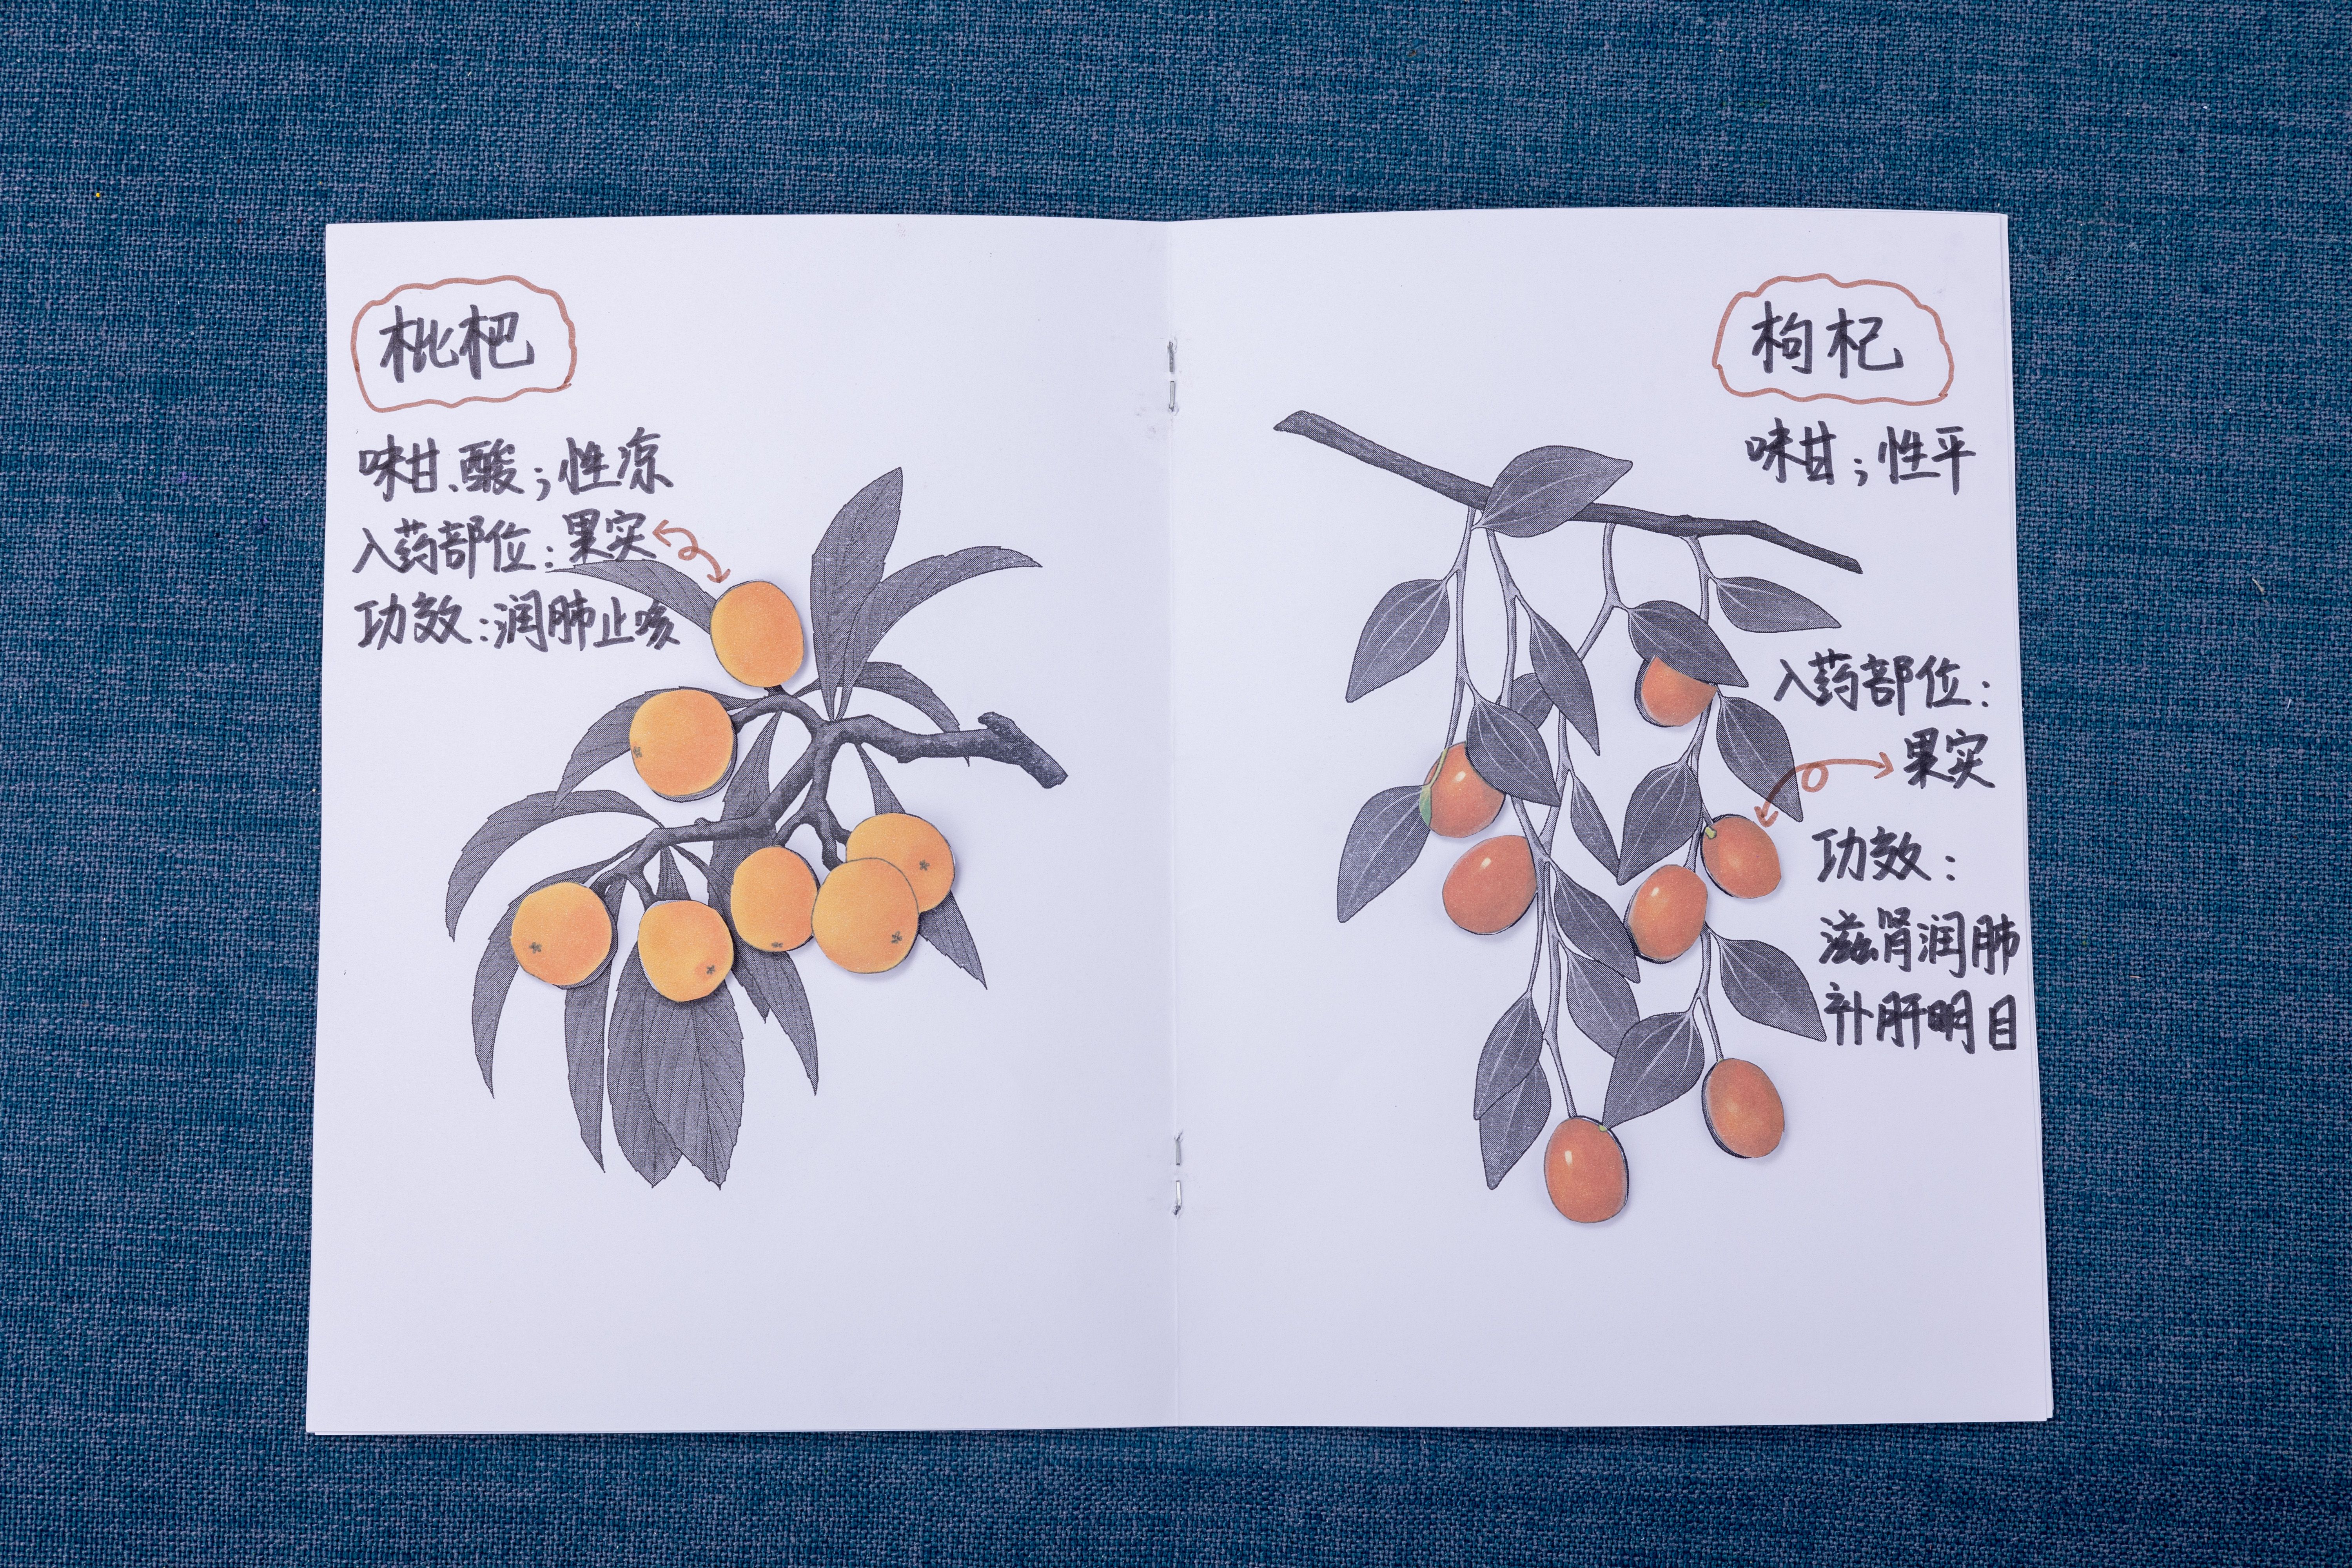 枇杷
味甘、酸；性凉
入药部位：果实
功效：润肺止咳
枸杞
味甘；性平
入药部位：
果实
功效：
滋肾润肺
补肝明目